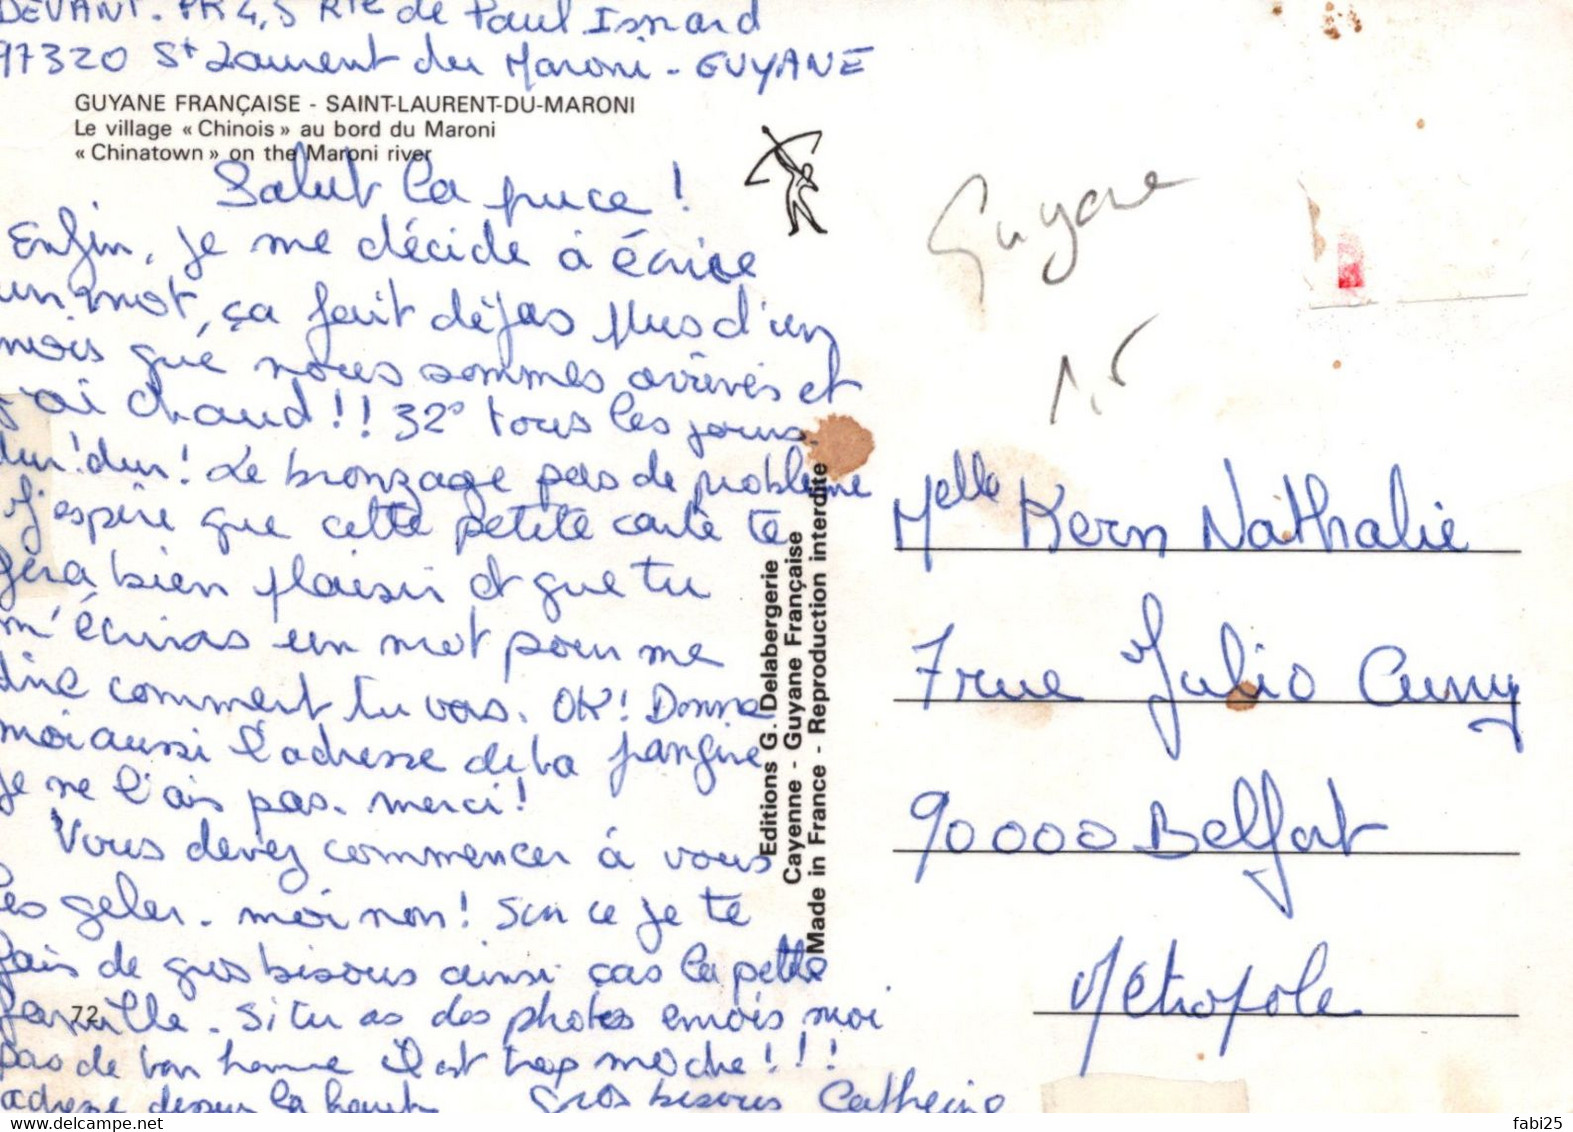 DEVANT. PK 4,5 Rte de Paul Isnard
97320 St Laurent du Maroni - GUYANE
GUYANE FRANÇAISE - SAINT-LAURENT-DU-MARONI
Le village « Chinois » au bord du Maroni
« Chinatown » on the Maroni river
Salut la puce !
Enfin, je me décide à écrire
un mot, ça fait déjas plus d'un
mois que nous sommes arrivés et
j'ai chaud !! 32° tous les jours.
dur ! dur ! Le bronzage pas de problème
J'espère que cette petite carte te
fera bien plaisir et que tu
m'écriras un mot pour me
dire comment tu vas. OK! Donne
moi aussi l'adresse de la frangine
je ne l'ais pas. merci !
Vous devez commencer à vous
les geler. moi non ! Sur ce je te
fais de gros bisous ainsi ças la petite
famille. Si tu as des photos envois moi
pas de ton homme il est trop moche !!!
adresse dessus la haut Gros bisous Catherine
72
Editions G. Delabergerie
Cayenne - Guyane Française
Made in France - Reproduction interdite
Guyane
1,5
Melle Kern Nathalie
7 rue Julio Cuny
90000 Belfort
Métropole
fabi25